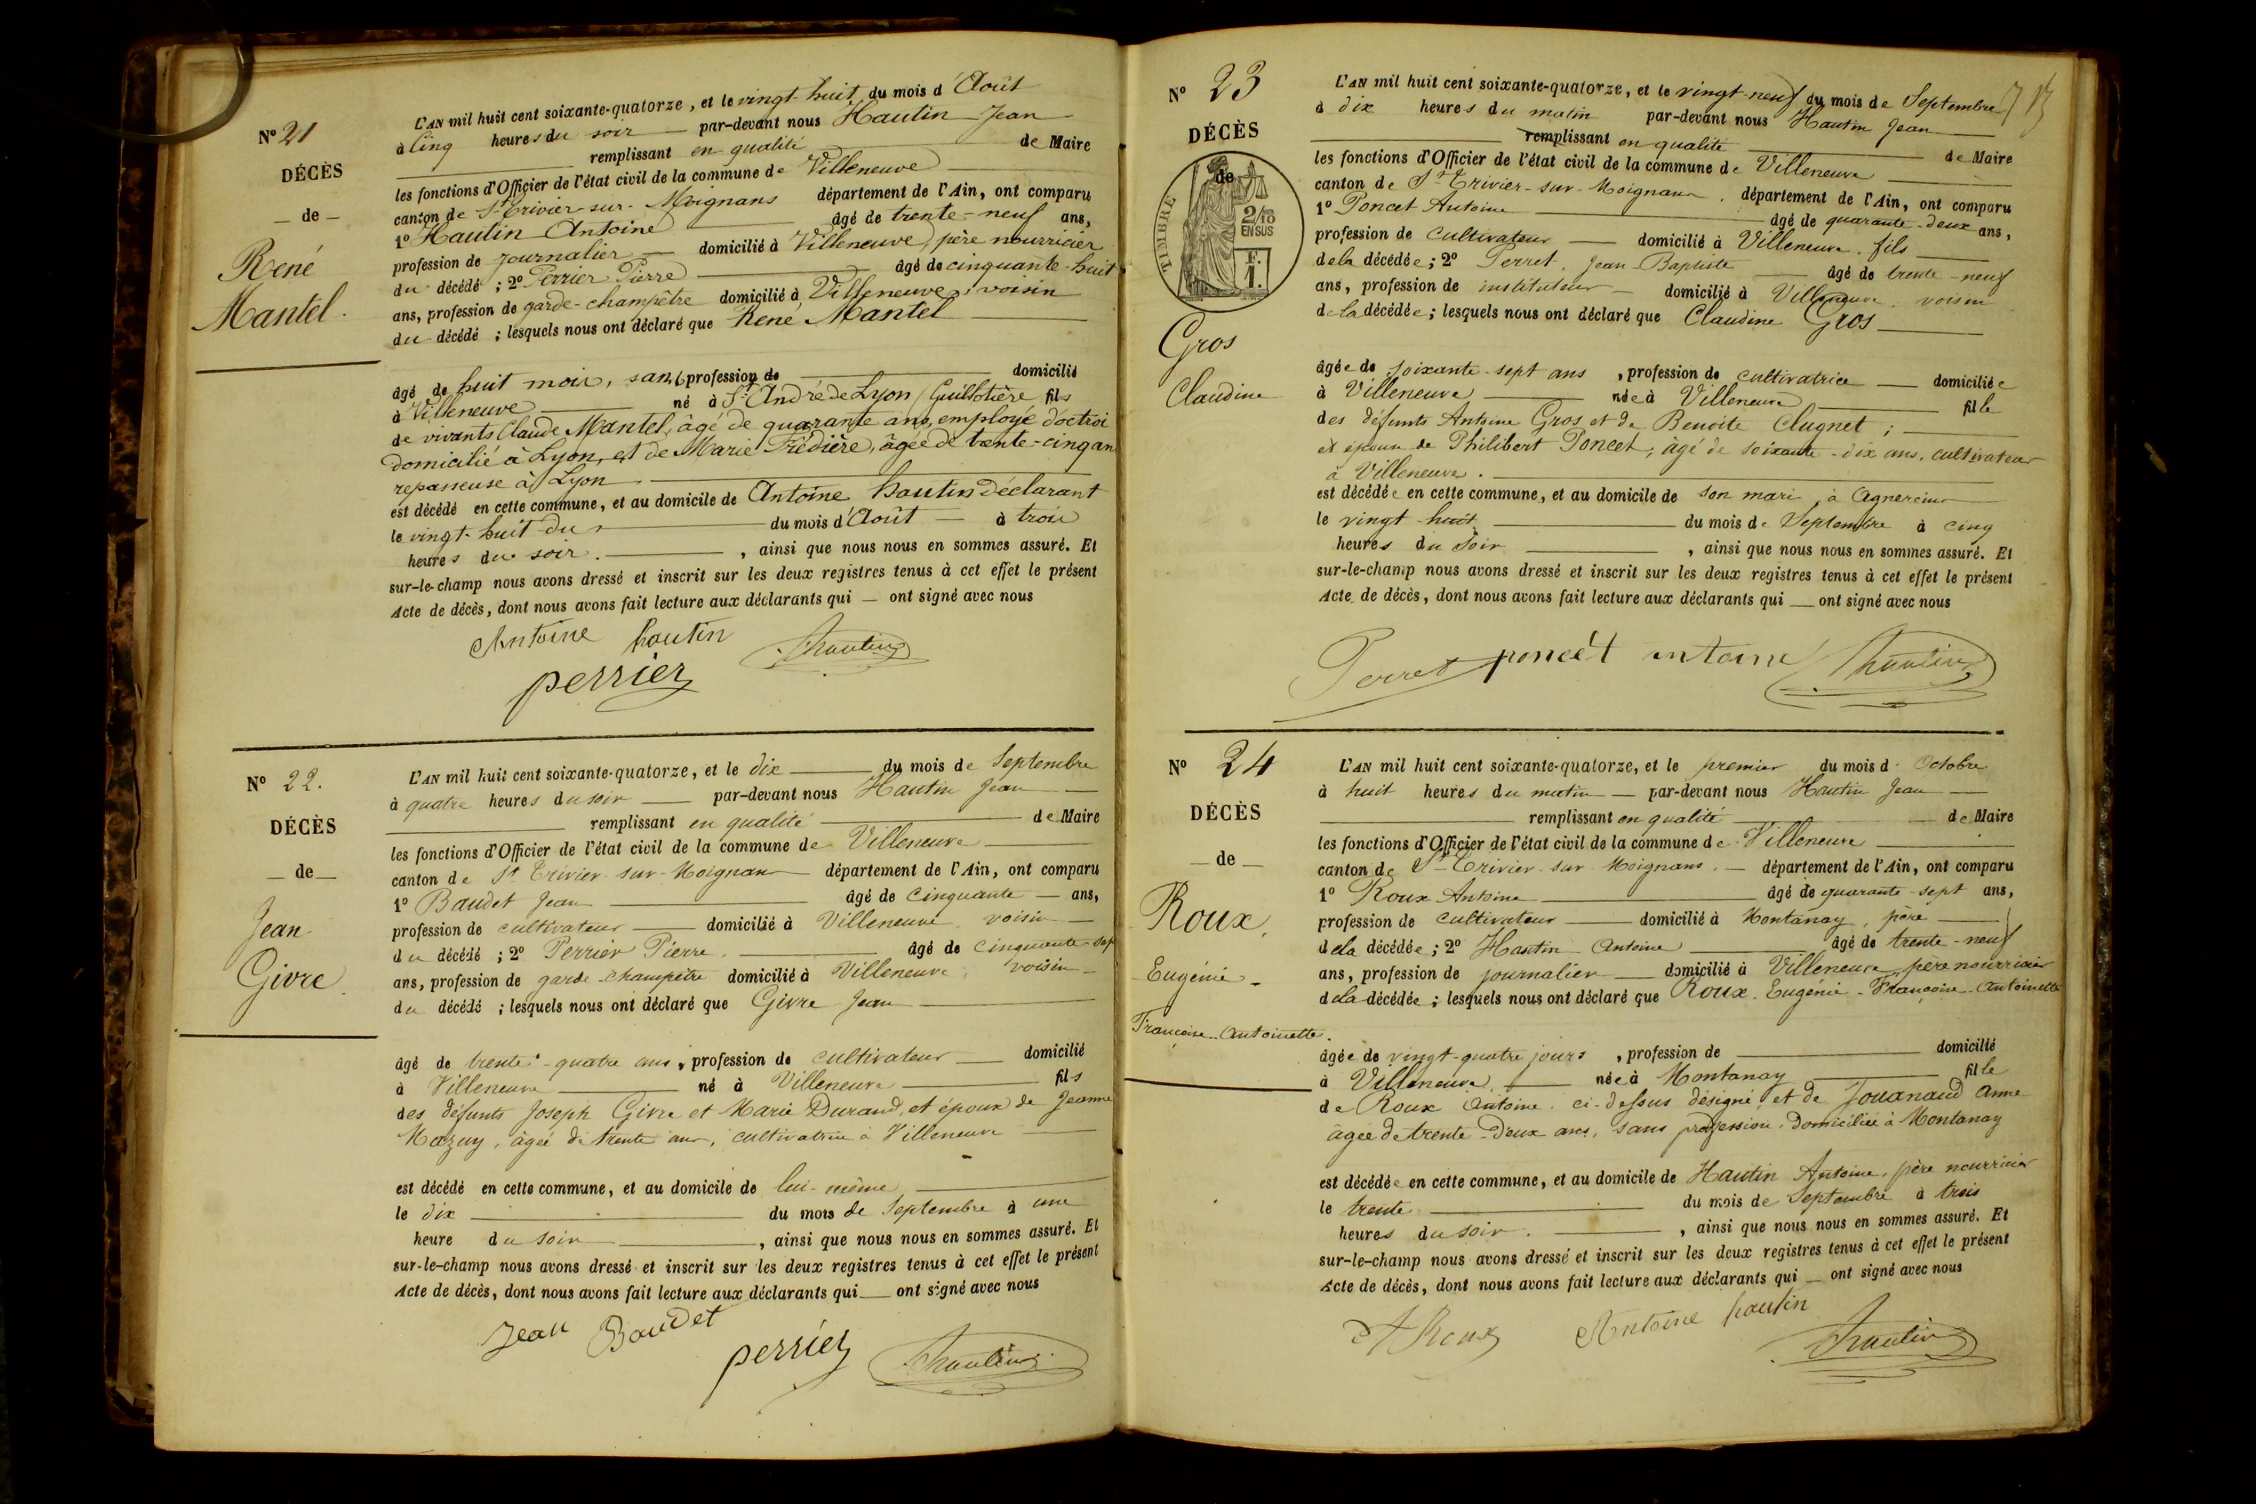 N° 21
DÉCÈS
— de —
René
Mantel.
L'AN mil huit cent soixante-quatorze, et le vingt-huit du mois d'Août
à cinq heures du soir — par-devant nous Hautin Jean
remplissant en qualité de Maire
les fonctions d'Officier de l'état civil de la commune de Villeneuve
canton de St Trivier-sur-Moignans département de l'Ain, ont comparu
1° Hautin Antoine âgé de trente-neuf ans,
profession de journalier — domicilié à Villeneuve, père nourricier
du décédé ; 2° Perrier Pierre âgé de cinquante-huit
ans, profession de garde-champêtre domicilié à Villeneuve, voisin
du décédé ; lesquels nous ont déclaré que René Mantel
âgé de huit mois, sans profession de domicilié
à Villeneuve né à St André de Lyon (Guillotière) fils
de vivants Claude Mantel, âgé de quarante ans, employé d'octroi
domicilié à Lyon, et de Marie Frédière, âgée de trente-cinq ans
repasseuse à Lyon.
est décédé en cette commune, et au domicile de Antoine hautin déclarant
le vingt-huit du mois d'Août — à trois
heures du soir. , ainsi que nous nous en sommes assuré. Et
sur-le-champ nous avons dressé et inscrit sur les deux registres tenus à cet effet le présent
Acte de décès, dont nous avons fait lecture aux déclarants qui — ont signé avec nous
Antoine hautin
Jhautin
perrier
N° 22.
DÉCÈS
— de —
Jean
Givre.
L'AN mil huit cent soixante-quatorze, et le dix du mois de Septembre
à quatre heures du soir — par-devant nous Hautin Jean
remplissant en qualité de Maire
les fonctions d'Officier de l'état civil de la commune de Villeneuve
canton de St Trivier-sur-Moignans département de l'Ain, ont comparu
1° Baudet Jean âgé de cinquante — ans,
profession de cultivateur — domicilié à Villeneuve, voisin
du décédé ; 2° Perrier Pierre. âgé de cinquante-sept
ans, profession de garde-champêtre domicilié à Villeneuve, voisin
du décédé ; lesquels nous ont déclaré que Givre Jean
âgé de trente-quatre ans, profession de cultivateur — domicilié
à Villeneuve né à Villeneuve fils
des défunts Joseph Givre et Marie Durand, et époux de Jeanne
Mazuy, âgée de trente ans, cultivatrice à Villeneuve
est décédé en cette commune, et au domicile de lui-même
le dix du mois de Septembre à une
heure du soir , ainsi que nous nous en sommes assuré. Et
sur-le-champ nous avons dressé et inscrit sur les deux registres tenus à cet effet le présent
Acte de décès, dont nous avons fait lecture aux déclarants qui — ont signé avec nous
Jean Baudet
perrier Jhautin
N° 23
DÉCÈS
de
TIMBRE
2/10
EN SUS
F.
1.
Gros
Claudine
L'AN mil huit cent soixante-quatorze, et le vingt-neuf du mois de Septembre
à dix heures du matin par-devant nous Hautin Jean
remplissant en qualité de Maire
les fonctions d'Officier de l'état civil de la commune de Villeneuve
canton de St Trivier-sur-Moignans, département de l'Ain, ont comparu
1° Poncet Antoine âgé de quarante-deux ans,
profession de cultivateur — domicilié à Villeneuve, fils
de la décédée ; 2° Perret, Jean-Baptiste âgé de trente-neuf
ans, profession de instituteur — domicilié à Villeneuve, voisin
de la décédée ; lesquels nous ont déclaré que Claudine Gros
âgée de soixante-sept ans, profession de cultivatrice — domiciliée
à Villeneuve née à Villeneuve fille
des défunts Antoine Gros et de Benoite Clugnet ;
et épouse de Philibert Poncet, âgé de soixante-dix ans, cultivateur
à Villeneuve.
est décédée en cette commune, et au domicile de son mari, à Agnereins
le vingt-huit du mois de Septembre à cinq
heures du soir , ainsi que nous nous en sommes assuré. Et
sur-le-champ nous avons dressé et inscrit sur les deux registres tenus à cet effet le présent
Acte de décès, dont nous avons fait lecture aux déclarants qui — ont signé avec nous
Perret poncét antoine Jhautin
N° 24
DÉCÈS
— de —
Roux,
Eugénie-
Françoise-Antoinette.
L'AN mil huit cent soixante-quatorze, et le premier du mois d'Octobre
à huit heures du matin — par-devant nous Hautin Jean
remplissant en qualité de Maire
les fonctions d'Officier de l'état civil de la commune de Villeneuve
canton de St Trivier-sur-Moignans. — département de l'Ain, ont comparu
1° Roux Antoine âgé de quarante-sept ans,
profession de cultivateur — domicilié à Montanay, père
de la décédée ; 2° Hautin Antoine âgé de trente-neuf
ans, profession de journalier — domicilié à Villeneuve, père nourricier
de la décédée ; lesquels nous ont déclaré que Roux Eugénie-Françoise-Antoinette
âgée de vingt-quatre jours, profession de domicilié
à Villeneuve née à Montanay fille
de Roux Antoine, ci-dessus désigné, et de Jouanaud Anne
âgée de trente-deux ans, sans profession, domiciliée à Montanay
est décédée en cette commune, et au domicile de Hautin Antoine, père nourricier
le trente du mois de Septembre à trois
heures du soir. , ainsi que nous nous en sommes assuré. Et
sur-le-champ nous avons dressé et inscrit sur les deux registres tenus à cet effet le présent
Acte de décès, dont nous avons fait lecture aux déclarants qui — ont signé avec nous
A Roux Antoine hautin Jhautin